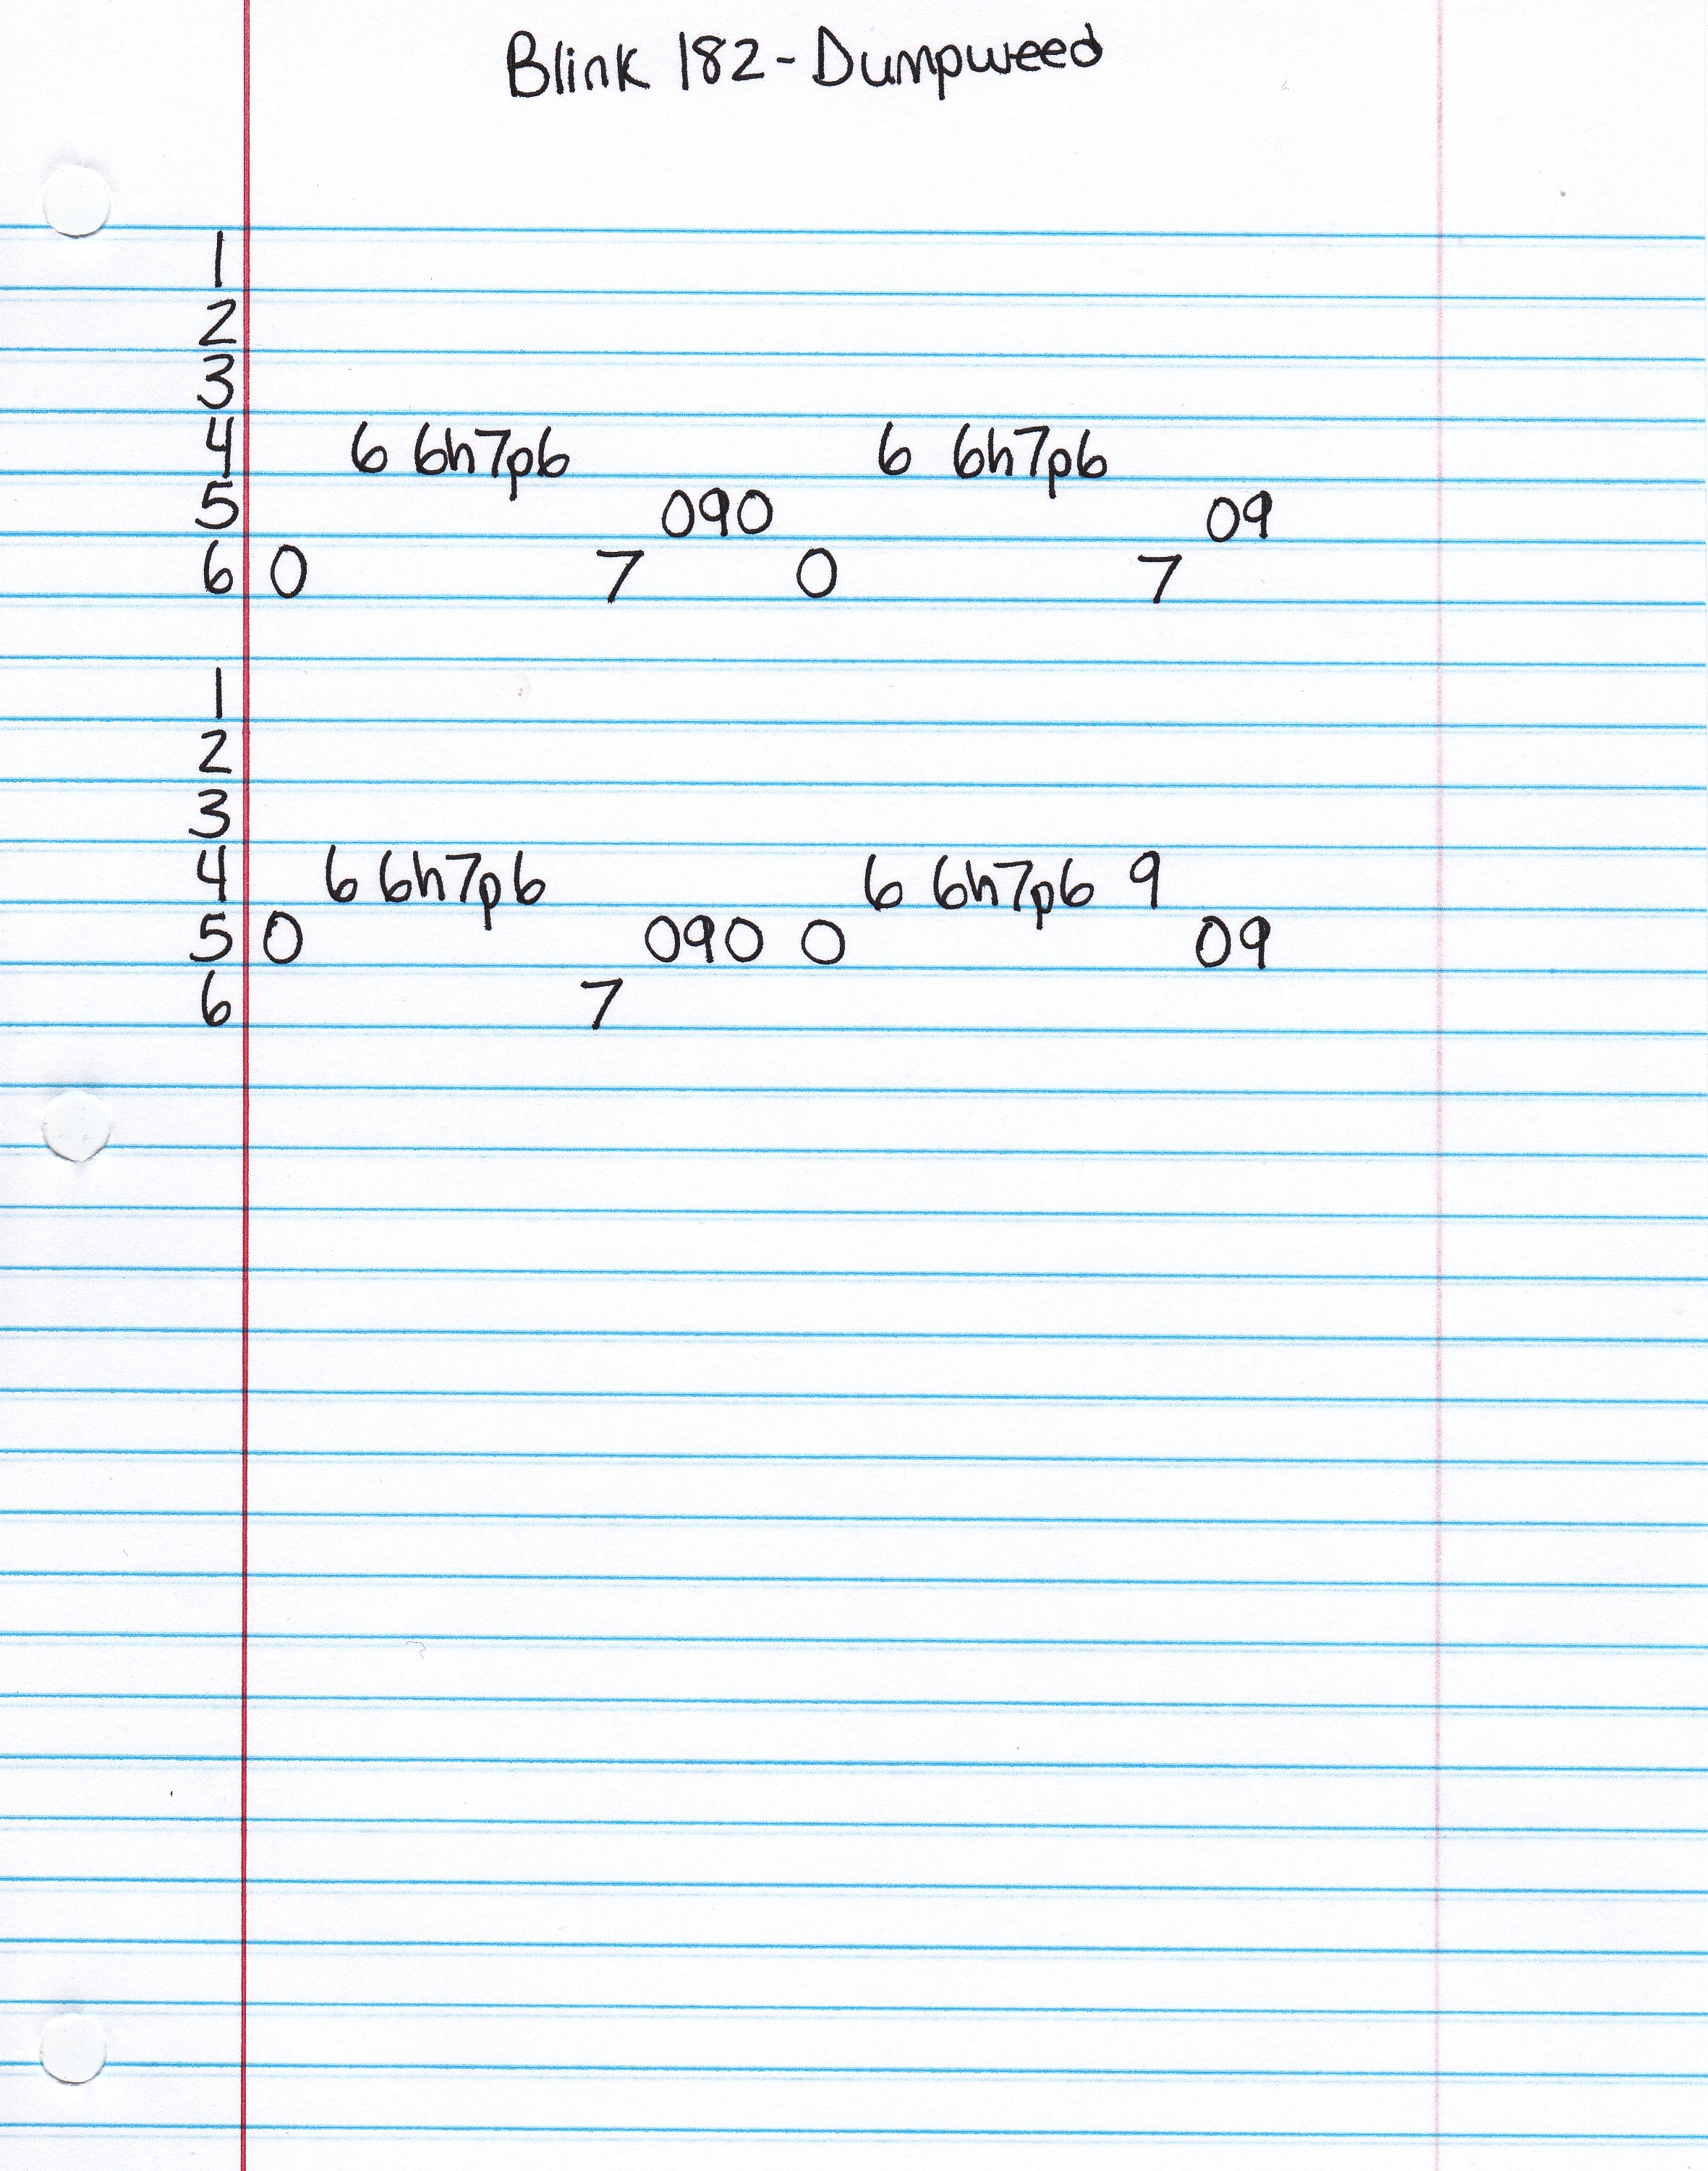 Blink 182 - Dumpweed
1
2
3
4 6 6h7p6 6 6h7p6
5 090 09
6 0 7 0 7
1
2
3
4 6 6h7p6 6 6h7p6 9
5 0 090 0 09
6 7